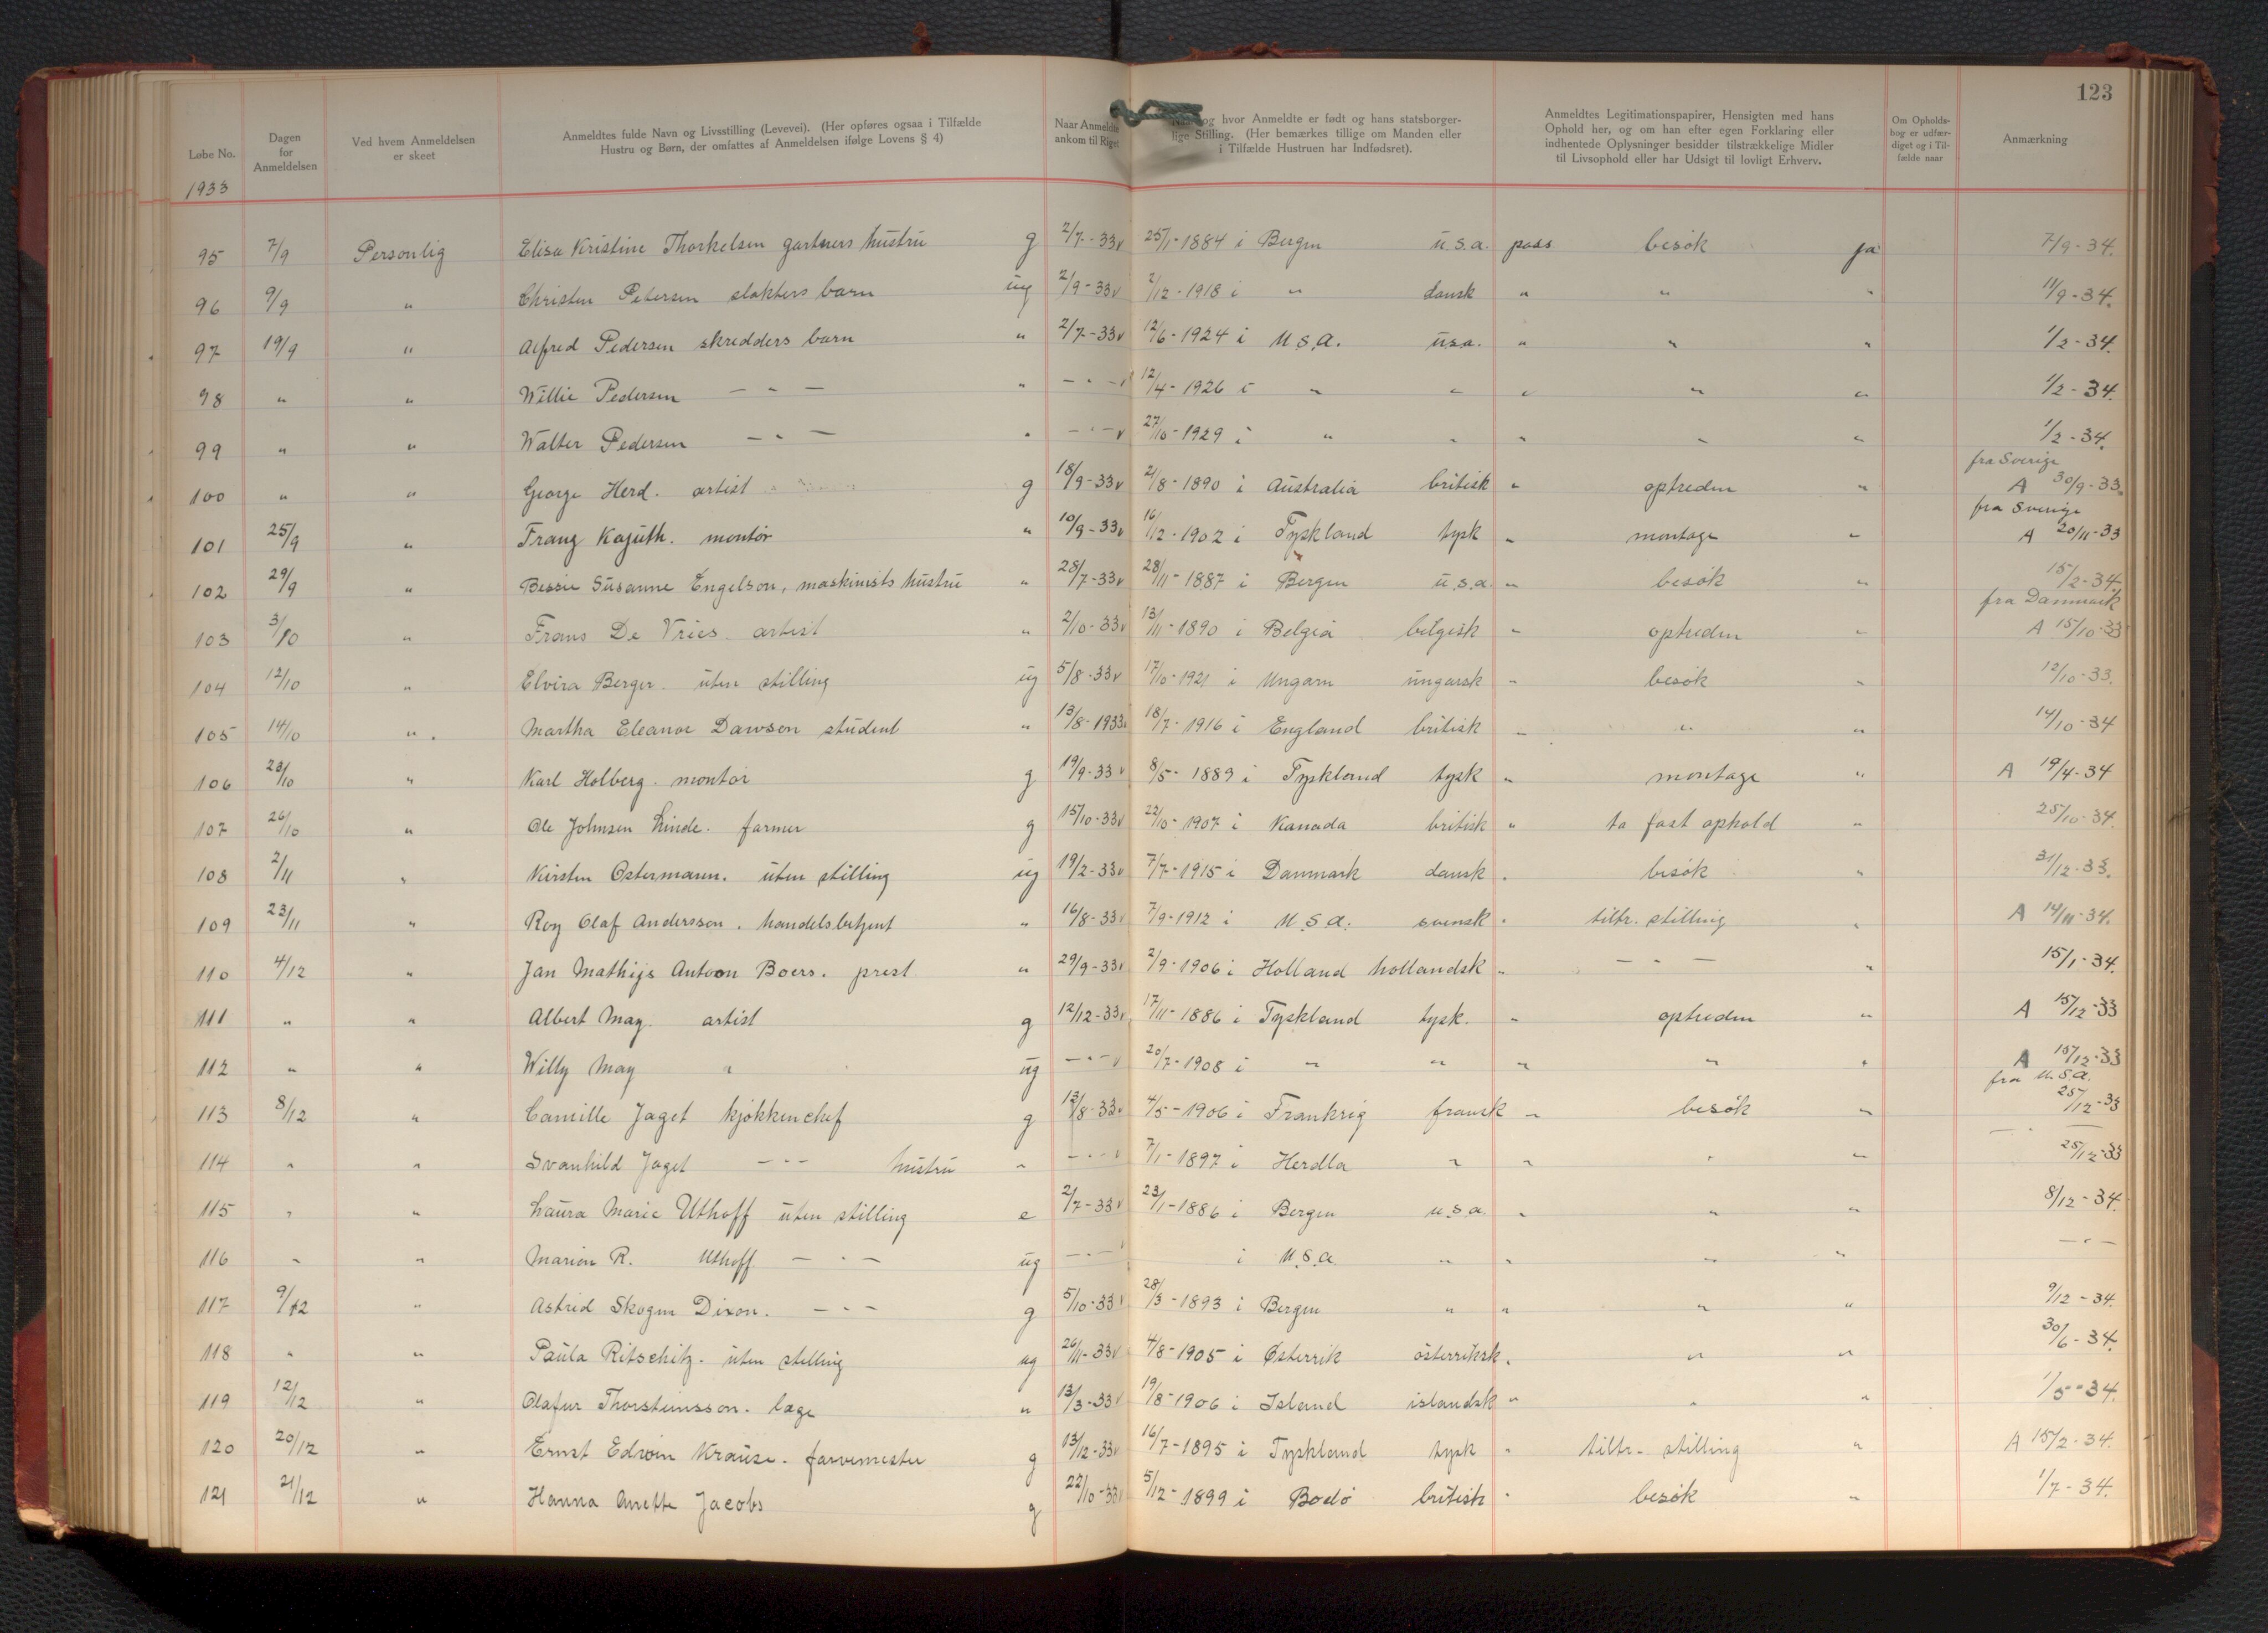 123
Løbe No.
Dagen for Anmeldelsen
Ved hvem Anmeldelsen er skeet
Anmeldtes fulde Navn og Livsstilling (Levevei). (Her opføres ogsaa i Tilfælde Hustru og Børn, der omfattes af Anmeldelsen ifølge Lovens § 4)
Naar Anmeldte ankom til Riget
og hvor Anmeldte er født og hans statsborgerlige Stilling. (Her bemærkes tillige om Manden eller i Tilfælde Hustruen har Indfødsret).
Anmeldtes Legitimationspapirer, Hensigten med hans Ophold her, og om han efter egen Forklaring eller indhentede Oplysninger besidder tilstrækkelige Midler til Livsophold eller har Udsigt til lovligt Erhverv.
Om Opholdsbog er udfærdiget og i Tilfælde naar
Anmærkning
1933
95 7/9 Personlig Elisa Kristine Thorkelsen gartners hustru g 2/7-33 v 25/1-1884 i Bergen u.s.a. pass besök ja 7/9-34.
96 9/9 " Christen Petersen slakters barn ug 2/9-33 v 2/12-1918 i " dansk " " " 11/9-34.
97 19/9 " Alfred Pedersen skredders barn " 2/7-33 v 12/6-1924 i U.S.A. u.s.a. " " " 1/2-34.
98 " " Willie Pedersen - " - " - " - v 12/4-1926 i " " " " " 1/2-34.
99 " " Walter Pedersen - " - " - " - v 27/10-1929 i " " " " " 1/2-34.
100 " " George Herd. artist g 18/9-33 v 21/8-1890 i Australia britisk " optreden " fra Sverige A 30/9-33.
101 25/9 " Franz Kajuth. montör " 10/9-33 v 16/12-1902 i Tyskland tysk " montage " fra Sverige A 20/11-33
102 29/9 " Bessie Susanne Engelson, maskinists hustru " 28/7-33 v 28/11-1887 i Bergen u.s.a. " besök " 15/2-34.
103 3/10 " Frans De Vries. artist " 2/10-33 v 13/11-1890 i Belgia belgisk " optreden " fra Danmark A 15/10-33
104 12/10 " Elvira Berger. uten stilling ug 5/8-33 v 17/10-1921 i Ungarn ungarsk " besök " 12/10-33.
105 14/10 " Martha Eleanor Dawson student " 13/8-1933 18/7-1916 i England britisk " " " 14/10-34
106 23/10 " Karl Holberg. montör g 19/9-33 v 8/5-1889 i Tyskland tysk " montage " A 19/4-34
107 26/10 " Ole Johnsen Linde. farmer g 15/10-33 v 22/10-1907 i Kanada britisk " ta fast ophold " 25/10-34.
108 2/11 " Kirsten Ostermann. uten stilling ug 19/2-33 v 7/7-1915 i Danmark dansk " besök " 31/12-33.
109 23/11 " Roy Olaf Andersson. handelsbetjent " 16/8-33 7/9-1912 i U.S.A. svensk " tiltr. stilling " A 14/11-34.
110 4/12 " Jan Mathijs Antoon Boers. prest " 29/9-33 v 2/9-1906 i Holland hollandsk " - " - " 15/1-34.
111 " " Albert May. artist g 12/12-33 v 17/11-1886 i Tyskland tysk. " optreden " A 15/12-33
112 " " Willy May " ug - " - v 20/7-1908 i " " " " " A 15/12-33
113 8/12 " Camille Jaget kjökkenchef g 13/8-33 v 4/5-1906 i Frankrig fransk " besök " fra U.S.A. 25/12-33
114 " " Svanhild Jaget - " - hustru " - " - v 7/1-1897 i Herdla " " " " - " - 25/12-33
115 " " Laura Marie Uthoff uten stilling e 2/7-33 v 23/1-1886 i Bergen u.s.a. " " " 8/12-34.
116 " " Marion R. Uthoff - " - ug - " - v i U.S.A. " " " " - " -
117 9/12 " Astrid Skogen Dixon. - " - g 5/10-33 v 28/3-1893 i Bergen " " " " 9/12-34.
118 " " Paula Ritschitz. uten stilling ug 26/11-33 v 4/8-1905 i Østerrik österriksk " " " 30/6-34.
119 12/12 " Olafur Thorsteinsson. læge " 13/3-33 v 19/8-1906 i Island islandsk " " " 1/5-34.
120 20/12 " Ernst Edwin Krause. farvemester g 13/12-33 v 16/7-1895 i Tyskland tysk " tiltr. stilling " A 15/2-34.
121 21/12 " Hanna Anette Jacobs g 22/10-33 v 5/12-1899 i Bodö britisk " besök " 1/7-34.